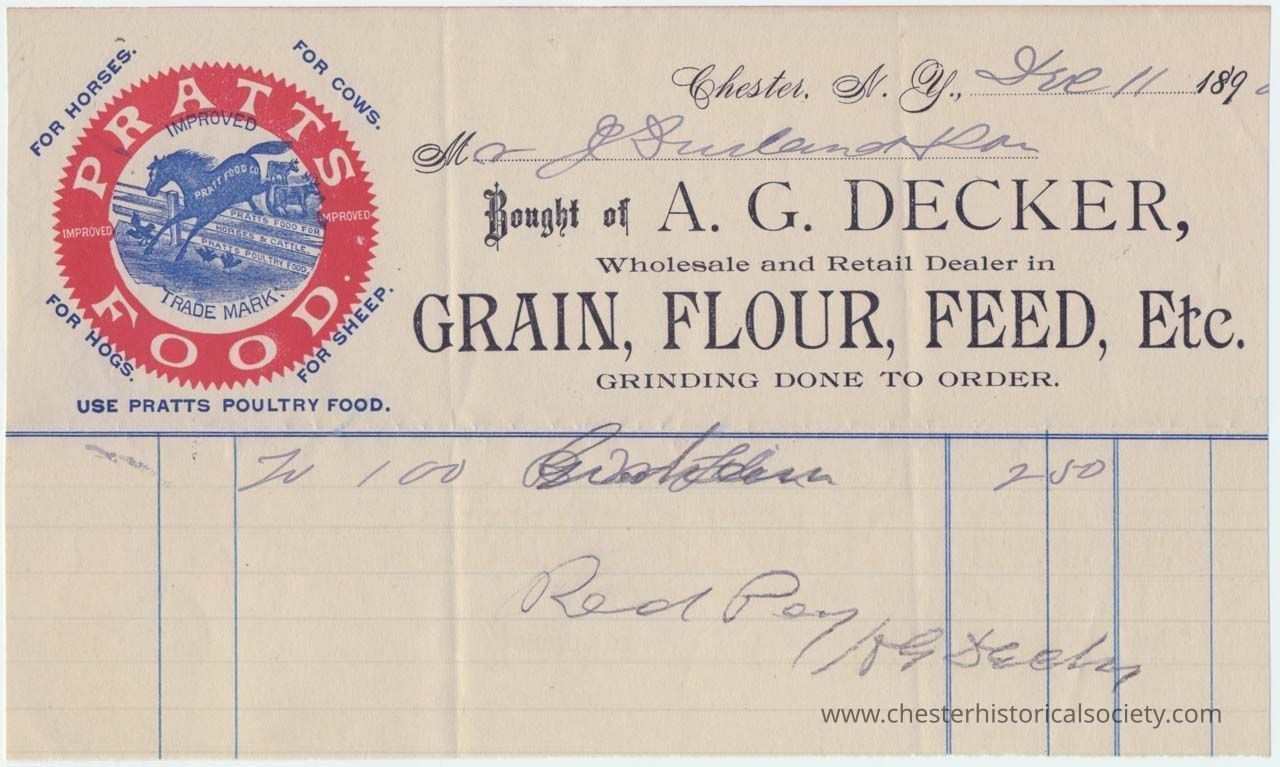 FOR HORSES.
FOR COWS.
PRATTS
IMPROVED
PRATT FOOD CO
PRATTS FOOD FOR
HORSES & CATTLE.
PRATTS POULTRY FOOD.
IMPROVED
IMPROVED
TRADE MARK.
FOOD.
FOR HOGS.
FOR SHEEP.
USE PRATTS POULTRY FOOD.
Chester, N. Y., Dec 11 189
Mr J Durland & Son
Bought of A. G. DECKER,
Wholesale and Retail Dealer in
GRAIN, FLOUR, FEED, Etc.
GRINDING DONE TO ORDER.
To 100 2 50
Recd Pay
A G Decker
www.chesterhistoricalsociety.com